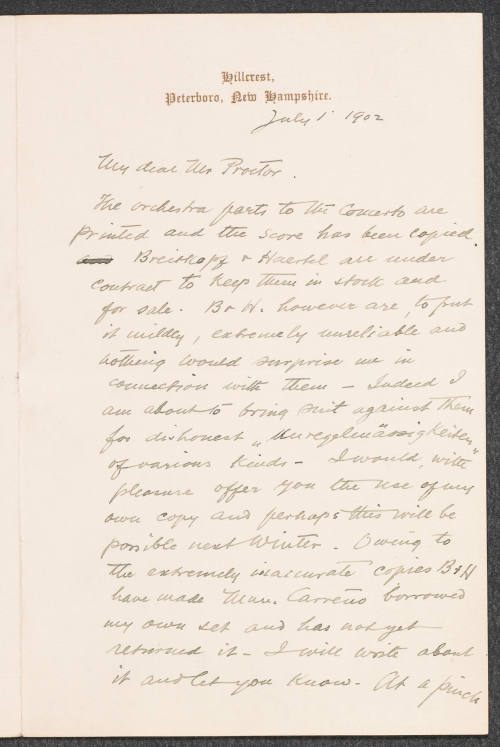 Hillcrest,
Peterboro, New Hampshire.
July 1 1902
My dear Mr Proctor.
The orchestra parts to the Concerto are
printed and the score has been copied.
and Breitkopf & Haertel are under
contract to keep them in stock and
for sale. B & H. however are, to put
it mildly, extremely unreliable and
nothing would surprise me in
connection with them – Indeed I
am about to bring suit against them
for dishonest „Unregelmässigkeiten"
of various kinds – I would, with
pleasure offer you the use of my
own copy and perhaps this will be
possible next Winter. Owing to
the extremely inaccurate copies B & H
have made Mme. Carreño borrowed
my own set and has not yet
returned it – I will write about
it and let you know – At a pinch